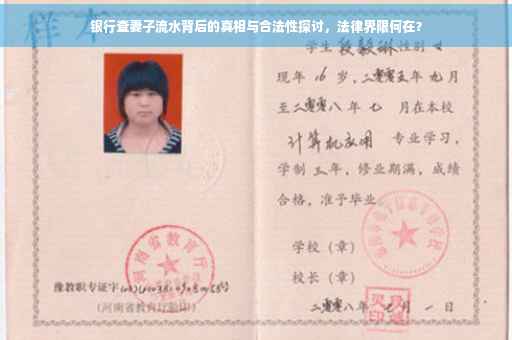 银行查妻子流水背后的真相与合法性探讨，法律界限何在?
样本
学生段毅琳性别女
现年16岁，二零零五年九月
至二零零八年七月在本校
计算机应用 专业学习，
学制三年，修业期满，成绩
合格，准予毕业。
学校（章）
校长（章）
二零零八年七月一日
河南省教育厅
豫教职专证字
（河南省教育厅验印）